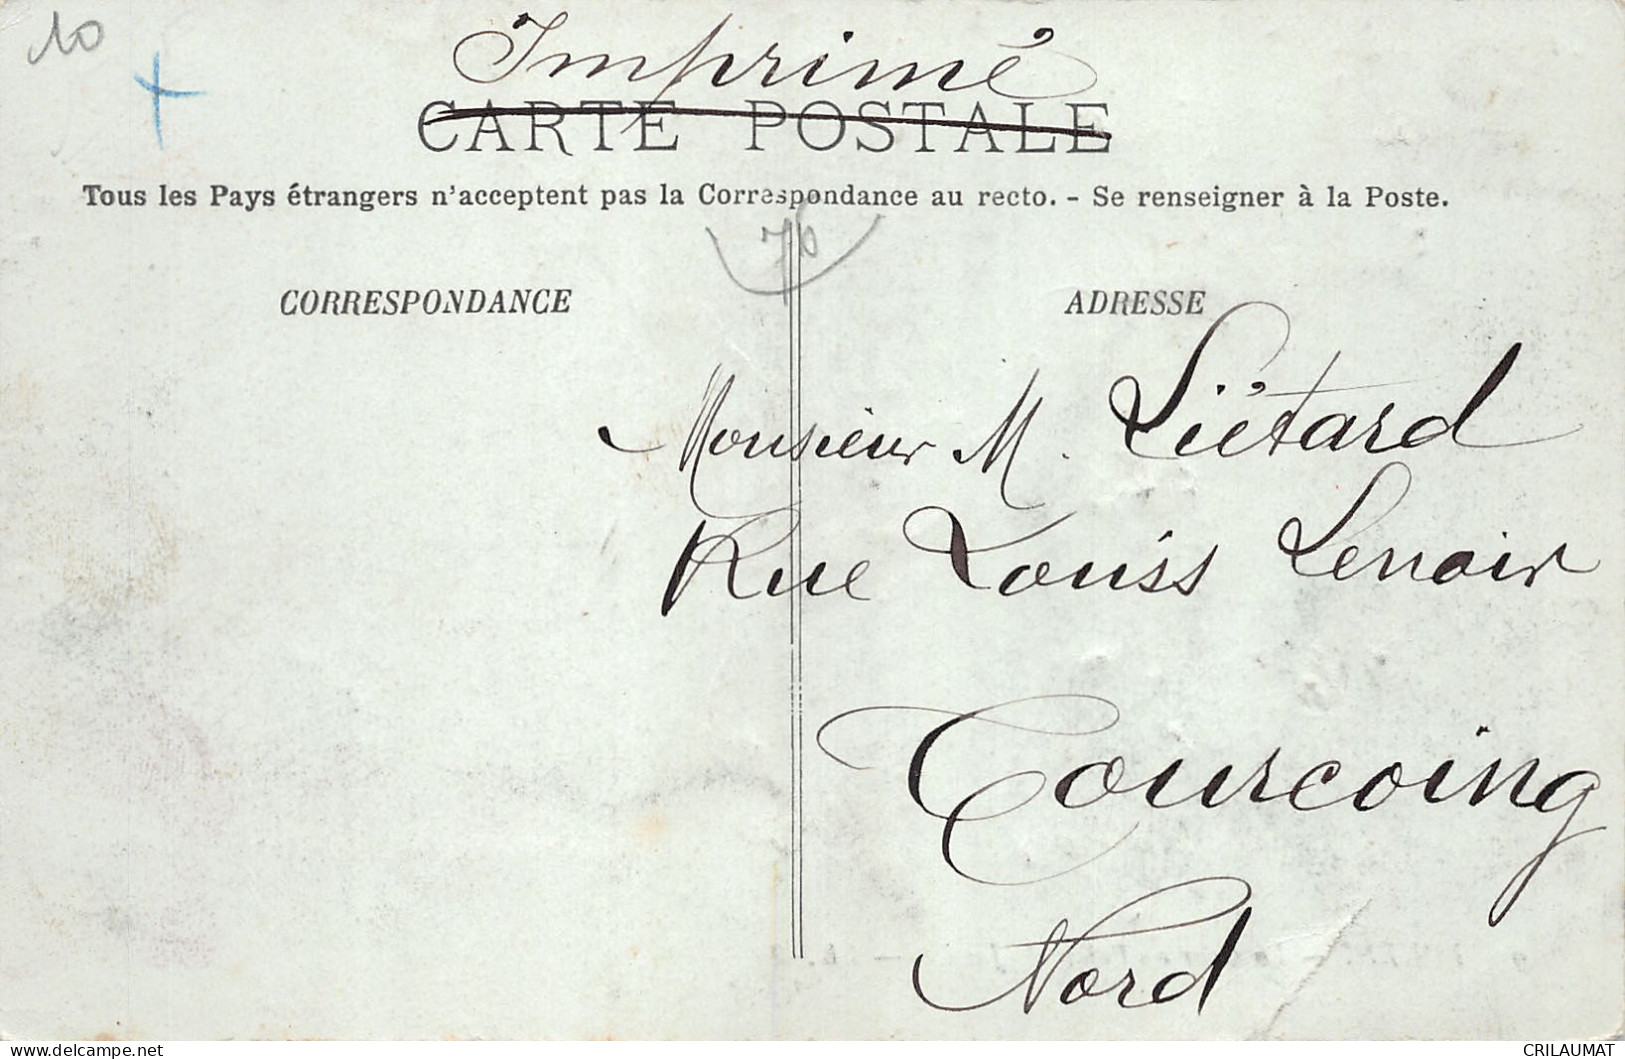 10
Imprimé
CARTE POSTALE
Tous les Pays étrangers n'acceptent pas la Correspondance au recto. - Se renseigner à la Poste.
70
CORRESPONDANCE
ADRESSE
Monsieur M. Liétard
Rue Louis Lenoir
Tourcoing
Nord
CRILAUMAT